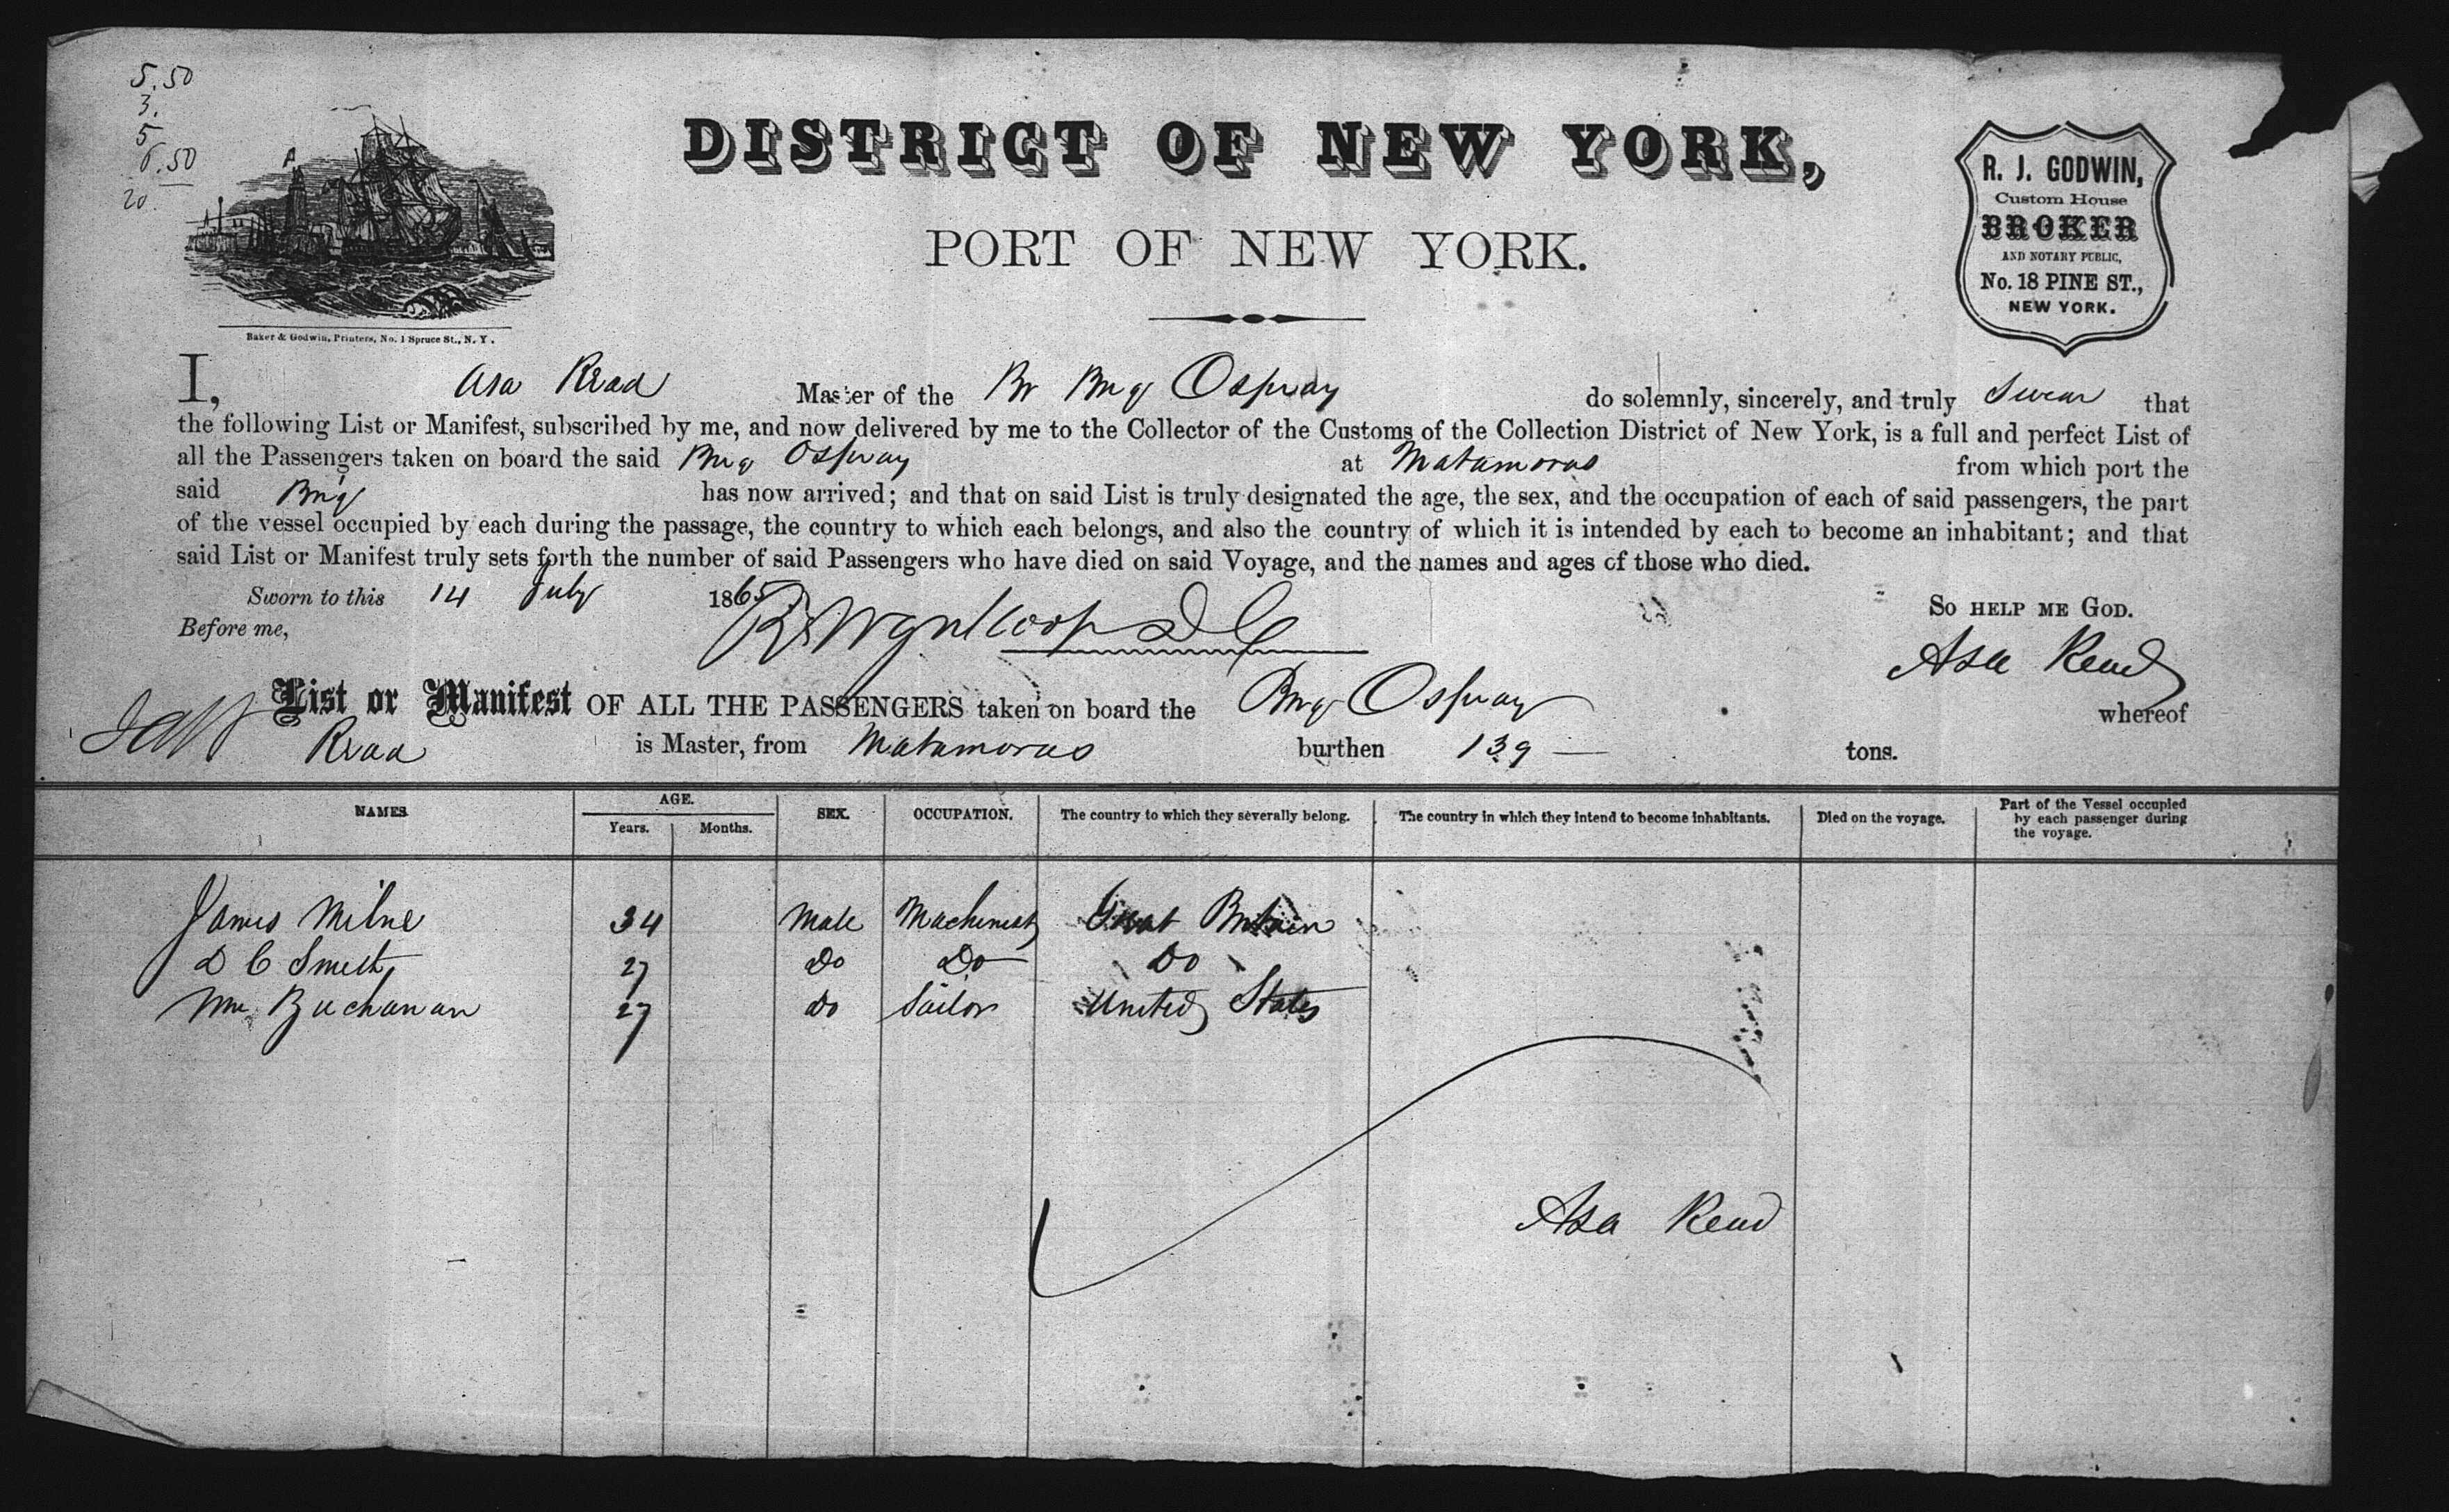 5.50
3.
5
6.50
20.
DISTRICT OF NEW YORK,
PORT OF NEW YORK.
R. J. GODWIN,
Custom House
BROKER
AND NOTARY PUBLIC,
No. 18 PINE ST.,
NEW YORK.
Baker & Godwin, Printers, No. 1 Spruce St., N. Y.
I, Asa Read Master of the Br Brig Ospray do solemnly, sincerely, and truly Swear that
the following List or Manifest, subscribed by me, and now delivered by me to the Collector of the Customs of the Collection District of New York, is a full and perfect List of
all the Passengers taken on board the said Brig Ospray at Matamoras from which port the
said Brig has now arrived; and that on said List is truly designated the age, the sex, and the occupation of each of said passengers, the part
of the vessel occupied by each during the passage, the country to which each belongs, and also the country of which it is intended by each to become an inhabitant; and that
said List or Manifest truly sets forth the number of said Passengers who have died on said Voyage, and the names and ages of those who died.
Sworn to this 14 July 1865
So HELP ME GOD.
Before me,
Asa Read
List or Manifest OF ALL THE PASSENGERS taken on board the Brig Ospray whereof
Read is Master, from Matamoras burthen 139 tons.
NAMES AGE. Years. Months. SEX. OCCUPATION. The country to which they severally belong. The country in which they intend to become inhabitants. Died on the voyage. Part of the Vessel occupied by each passenger during the voyage.
James Milne 34 Male Machinist Great Britain
D C Smith 27 Do Do Do
Wm Buchanan 27 Do Sailor United States
Asa Read